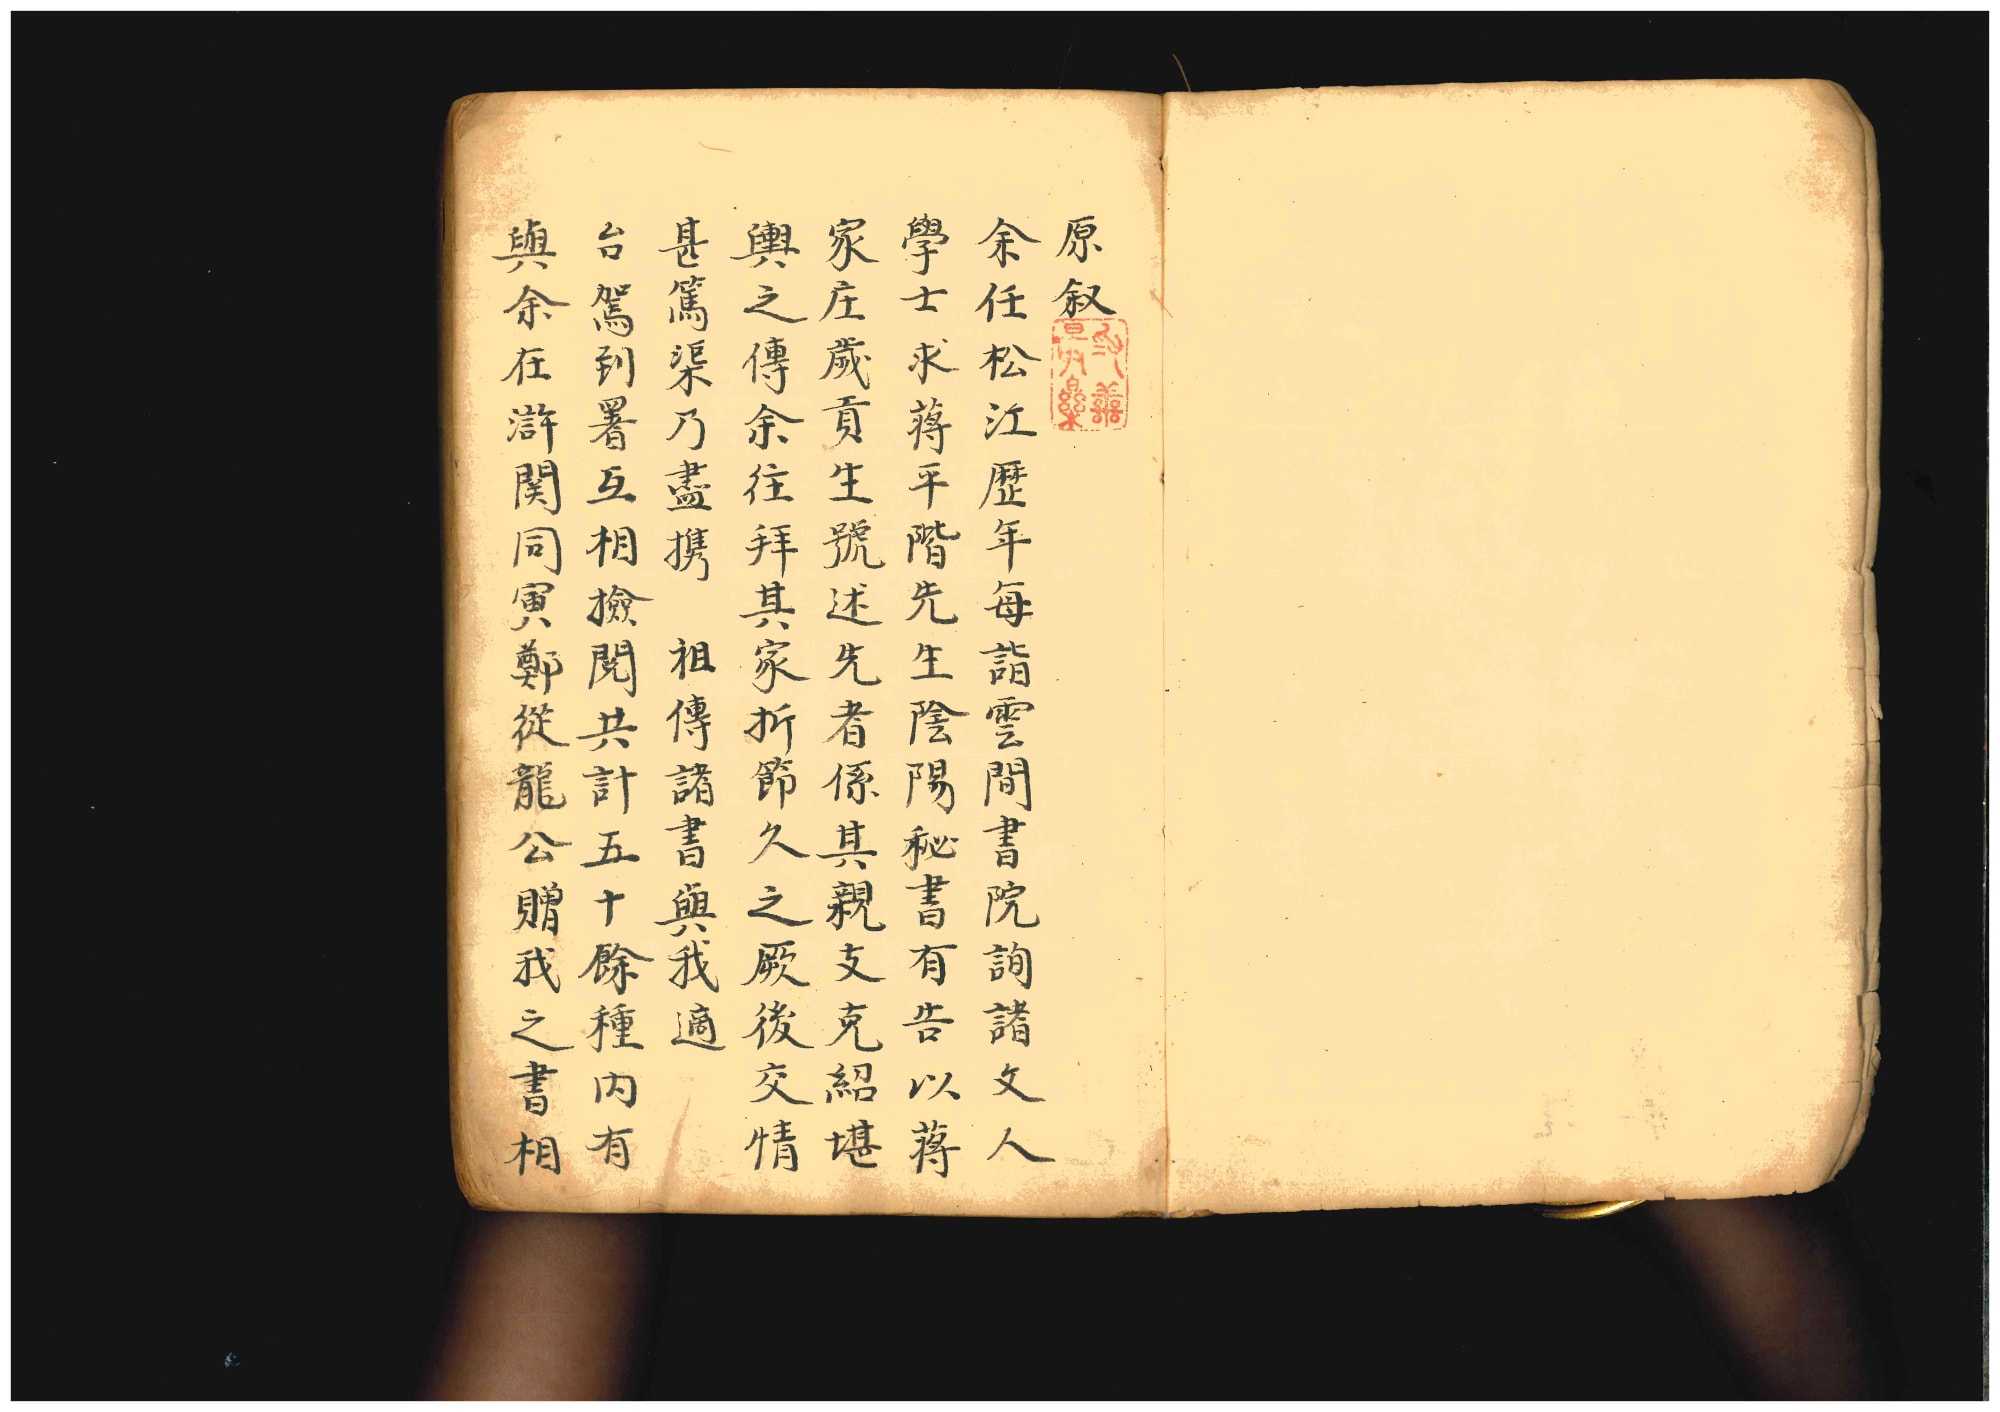 原叙
余任松江歷年每詣雲間書院詢諸文人
學士求蔣平階先生陰陽秘書有告以蔣
家庄歲貢生號述先者係其親支克紹堪
輿之傳余往拜其家折節久之厥後交情
甚篤渠乃盡携　祖傳諸書與我適
台駕到署互相撿閱共計五十餘種内有
與余在滸関同寅鄭從龍公贈我之書相